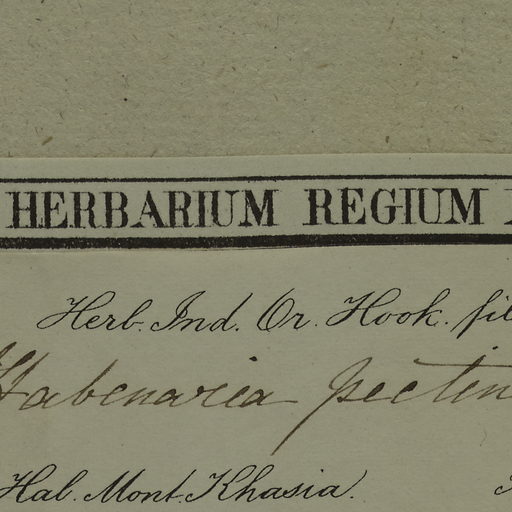 HERBARIUM REGIUM
Herb. Ind. Or. Hook. fil
Habenaria pectin
Hab. Mont. Khasia.